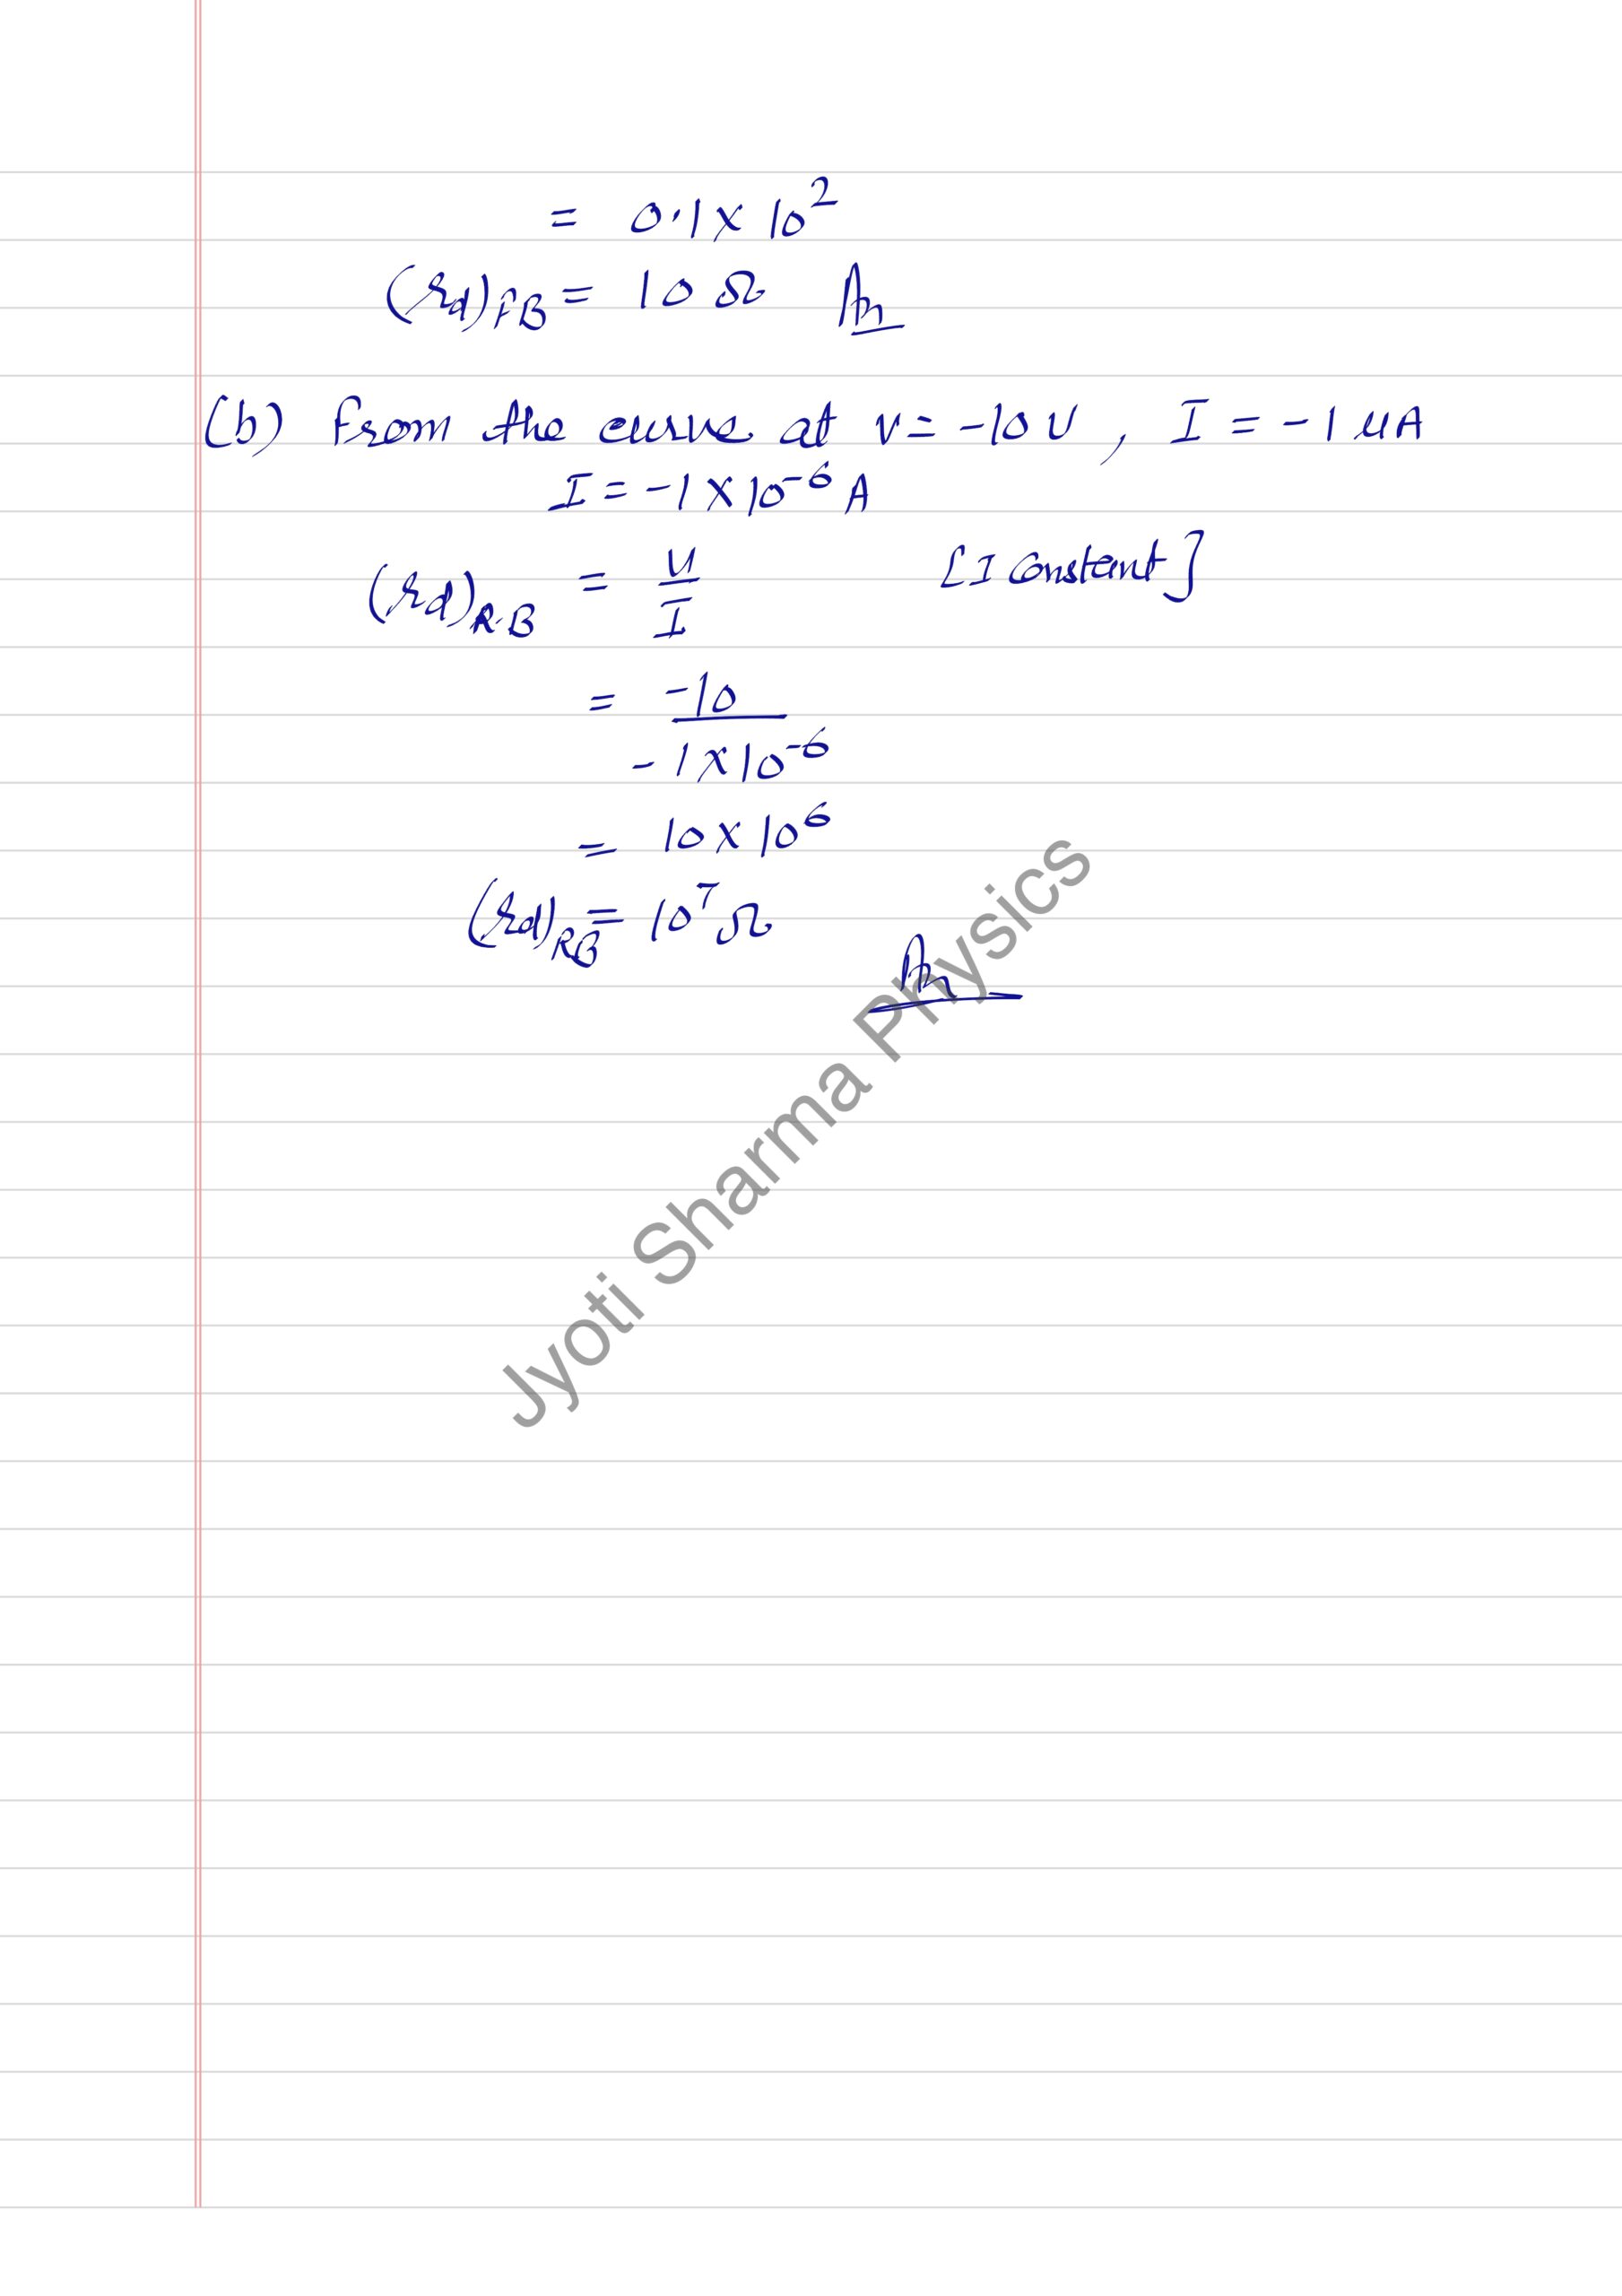 = 0.1 × 10²
(rd)FB = 10 Ω An
(b) From the curve at V = -10 V, I = -1 μA
I = -1 × 10⁻⁶ A
(rd)R.B = V/I [I Constant]
= -10 / -1 × 10⁻⁶
= 10 × 10⁶
(rd)RB = 10⁷ Ω
An
Jyoti Sharma Physics